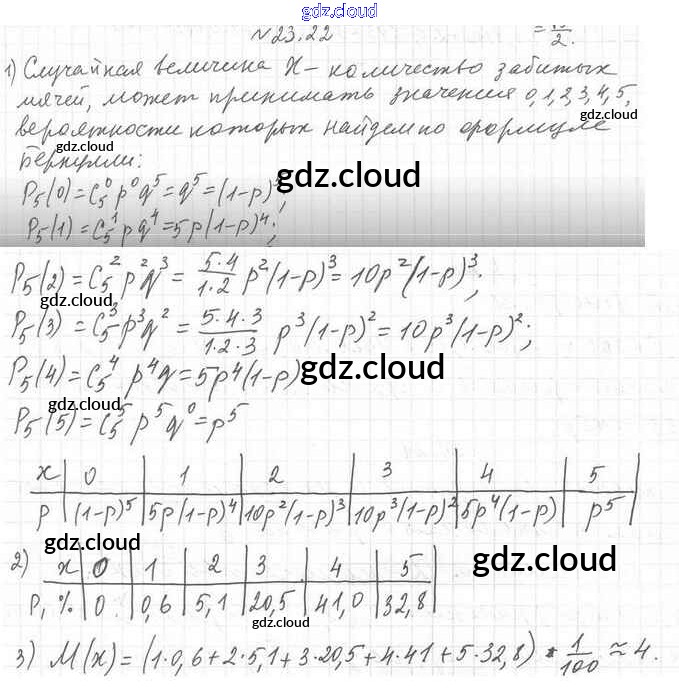 gdz.cloud
N 23.22
1) Случайная величина X – количество забитых
мячей, может принимать значения 0,1,2,3,4,5,
вероятности которых найдем по формуле
Бернулли:
gdz.cloud
gdz.cloud
gdz.cloud
P₅(0)=C₅⁰p⁰q⁵=q⁵=(1-p)⁵;
P₅(1)=C₅¹pq⁴=5p(1-p)⁴;
P₅(2)=C₅²p²q³= 5·4/1·2 p²(1-p)³=10p²(1-p)³;
gdz.cloud
P₅(3)=C₅³p³q²= 5·4·3/1·2·3 p³(1-p)²=10p³(1-p)²;
P₅(4)=C₅⁴p⁴q=5p⁴(1-p)
gdz.cloud
gdz.cloud
P₅(5)=C₅⁵p⁵q⁰=p⁵
x | 0 | 1 | 2 | 3 | 4 | 5
P | (1-p)⁵ | 5p(1-p)⁴ | 10p²(1-p)³ | 10p³(1-p)² | 5p⁴(1-p) | p⁵
gdz.cloud
gdz.cloud
2) x | 0 | 1 | 2 | 3 | 4 | 5
P, % | 0 | 0,6 | 5,1 | 20,5 | 41,0 | 32,8
gdz.cloud
3) M(x)=(1·0,6+2·5,1+3·20,5+4·41+5·32,8)·1/100≈4.